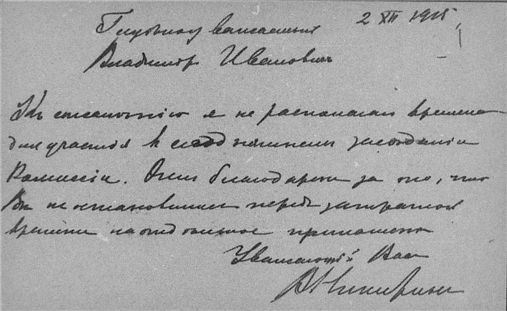 2 XII 1915
Глубокоуважаемый
Владимир Иванович
Къ сожалѣнію я не располагаю временемъ
для участія въ сегодняшнемъ засѣданіи
Комиссіи. Очень благодаренъ за то, что
Вы не остановились передъ затратой
времени на отдѣльное приглашеніе
Уважающій Васъ